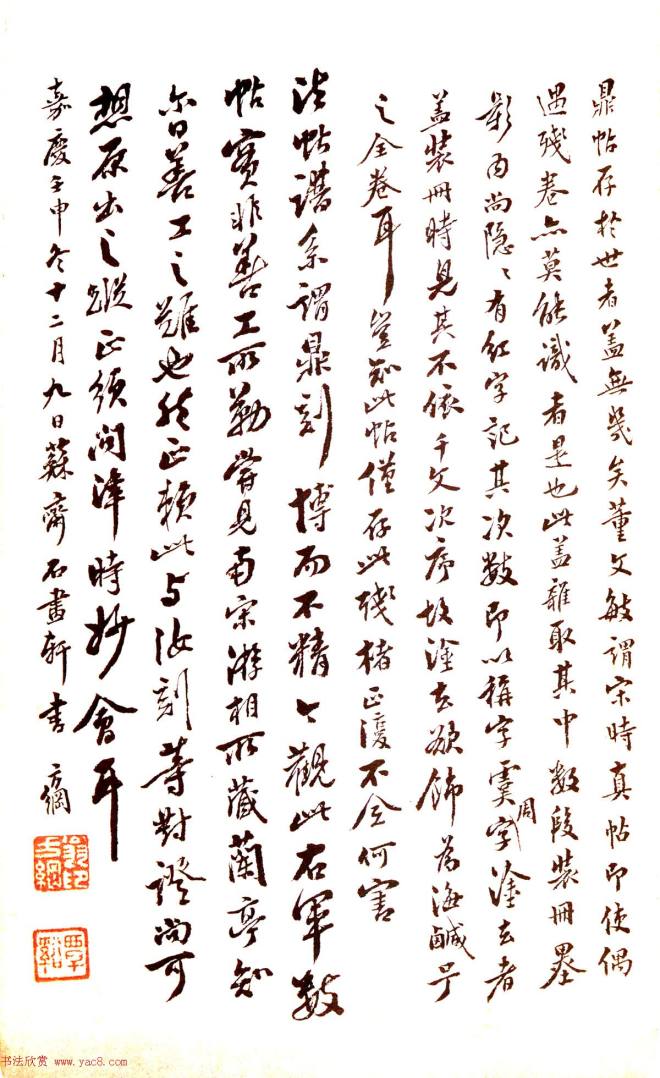 鼎帖存於世者蓋無幾矣董文敏謂宋時真帖即使偶
遇殘卷亦莫能識者是也此蓋雜取其中數段裝冊墨
影內尚隱〻有紅字記其次數即以稱字虞字周塗去者
蓋裝冊時見其不依千文次序故塗去欲飾為海鹹字
之全卷耳豈知此帖僅存此殘楮正復不全何害
法帖譜系謂鼎刻博而不精今觀此右軍數
帖實非善工所勒嘗見南宋游相所藏蘭亭知
爾日善工之難也然正賴此与汝刻等對證尚可
想原出之蹤正須問津時妙會耳
嘉慶壬申冬十二月九日蘇齋石畫軒書 方綱
翁方綱印
覃谿
书法欣赏 www.yac8.com